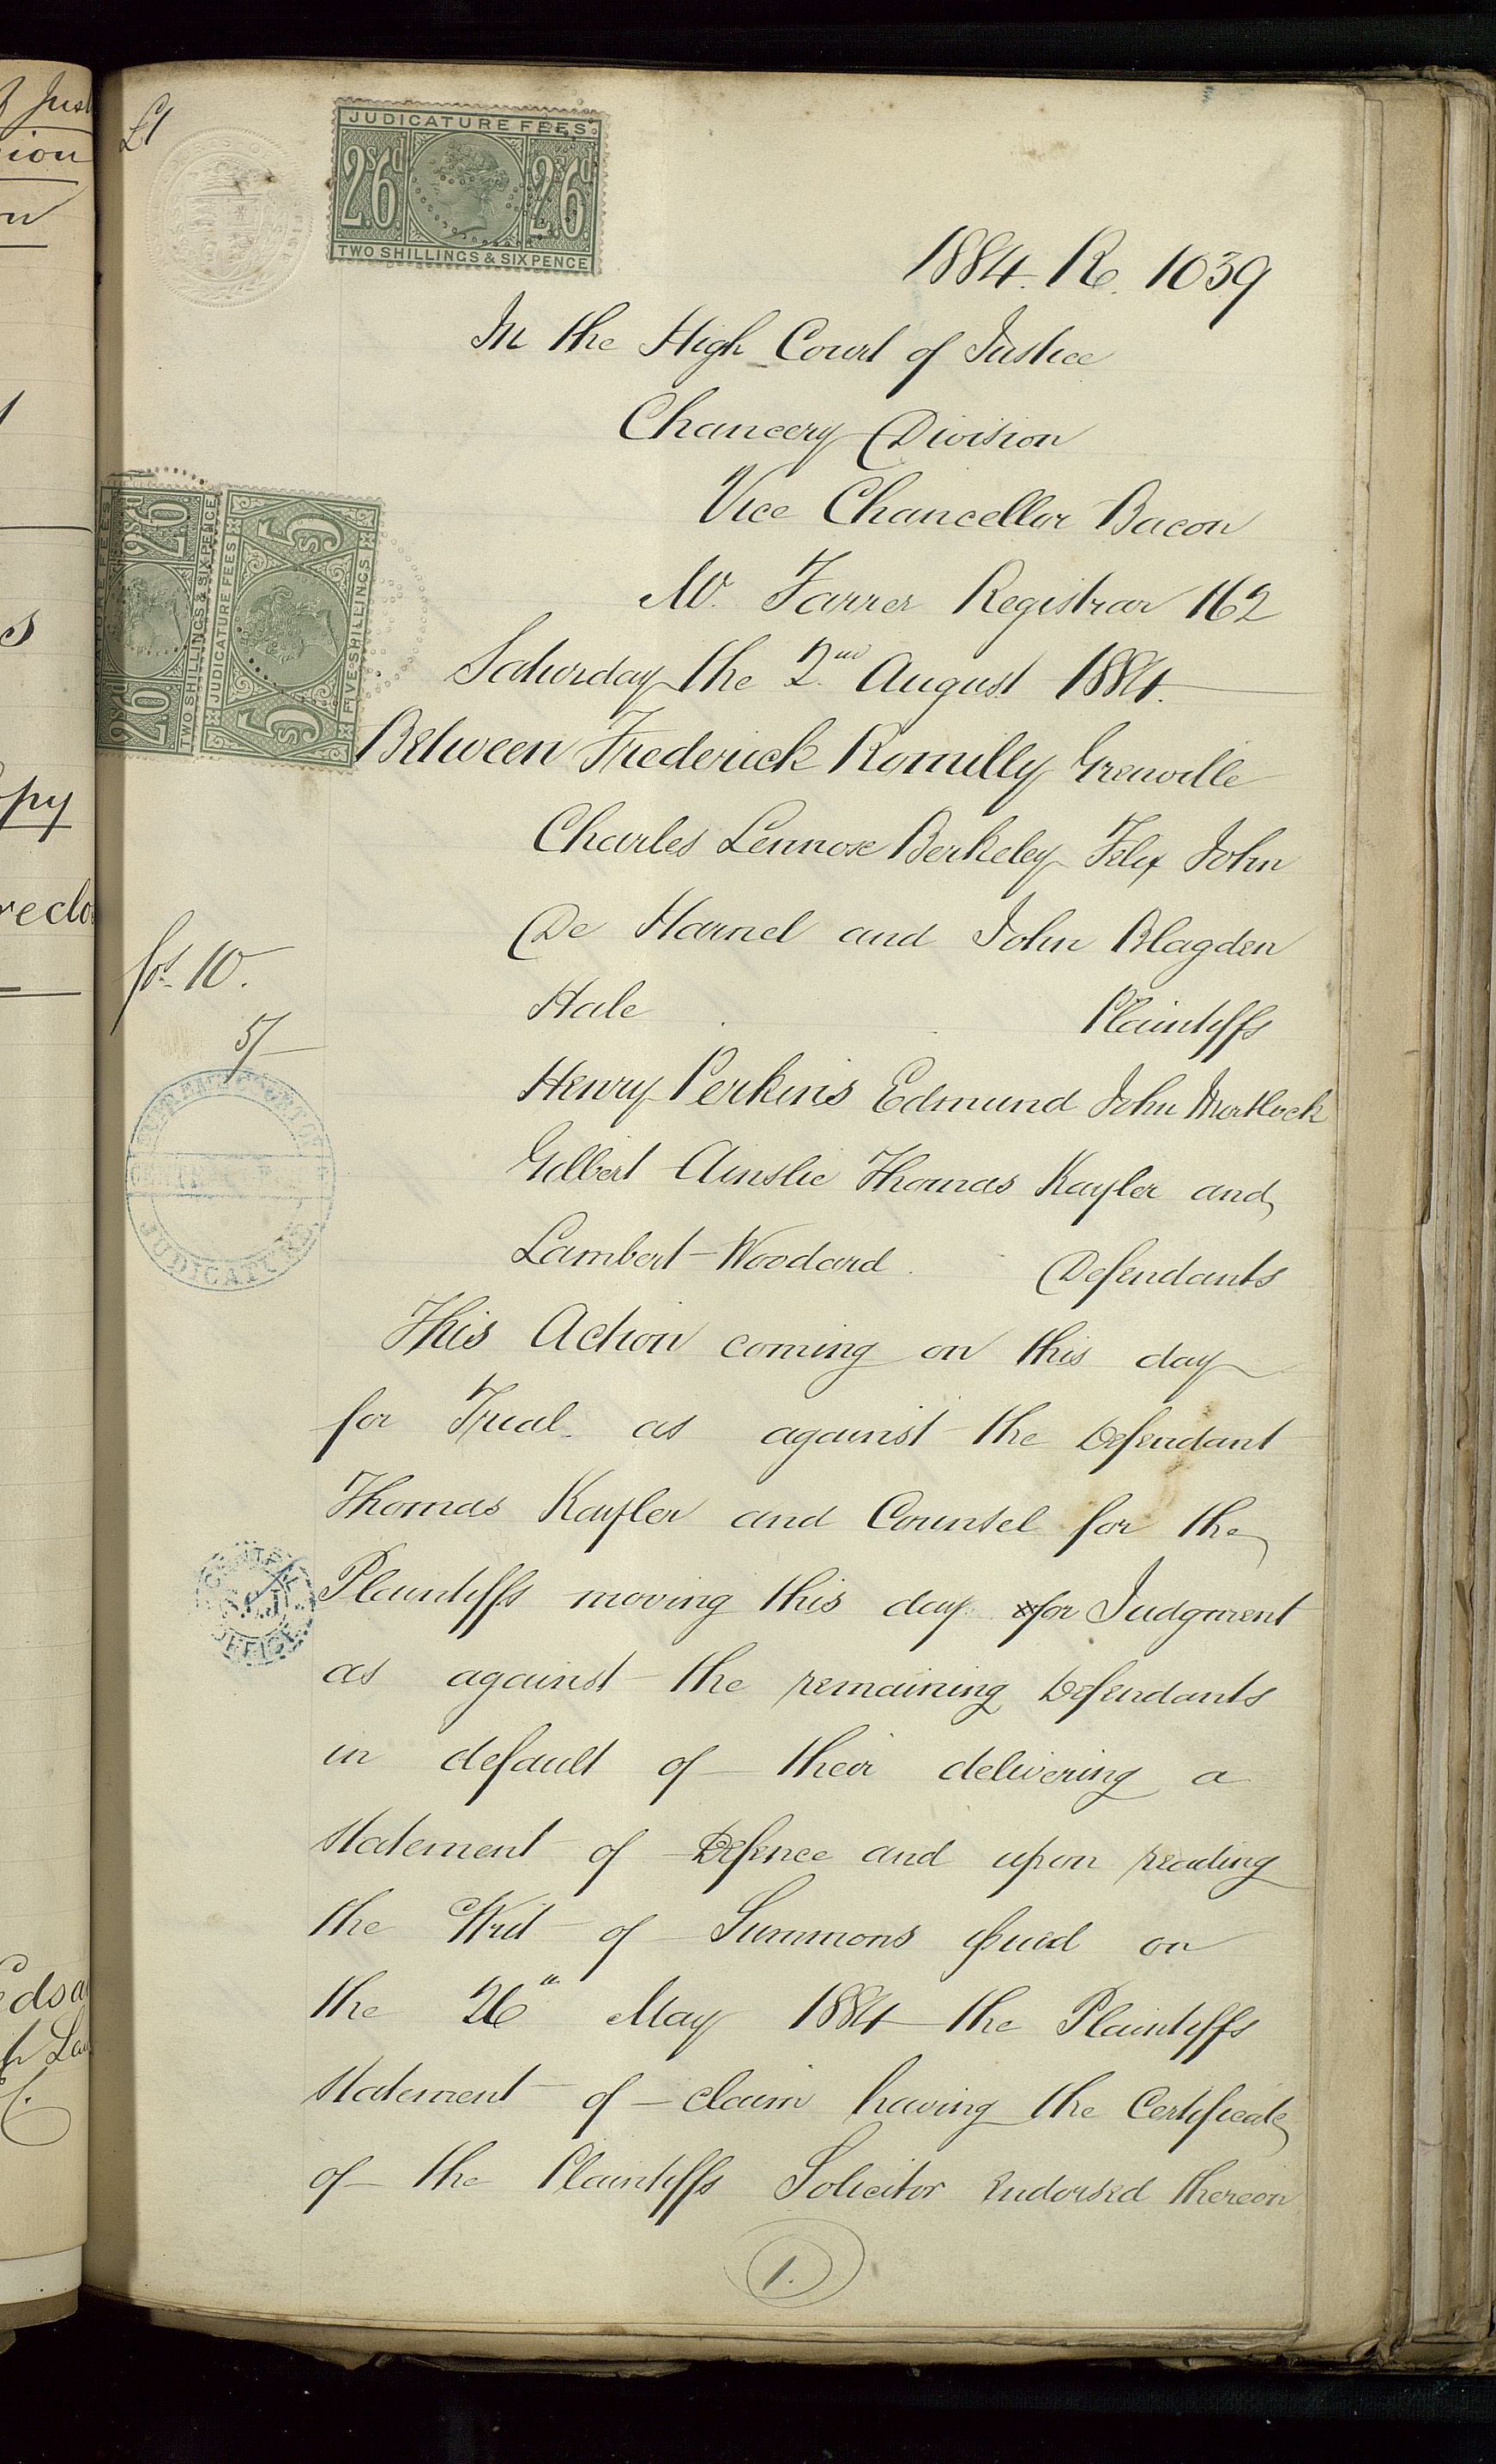 £1
JUDICATURE FEES.
2s/6d 2s/6d
TWO SHILLINGS & SIXPENCE
1884. R. 1039
In the High Court of Justice
Chancery Division
Vice Chancellor Bacon
Mr. Farrer Registrar 162
Saturday the 2nd August 1884.
Between Frederick Romilly Grenville
Charles Lennox Berkeley Felix John
De Hamel and John Blagden
Hale Plaintiffs
Henry Perkins Edmund John Mortlock
Gilbert Ainslie Thomas Kayler and
Lambert Woodard. Defendants
This Action coming on this day
for Trial as against the Defendant
Thomas Kayler and Counsel for the
Plaintiffs moving this day for Judgment
as against the remaining Defendants
in default of their delivering a
statement of Defence and upon reading
the Writ of Summons issued on
the 26th May 1884 the Plaintiffs
statement of claim having the Certificate
of the Plaintiffs Solicitor endorsed thereon
1.
JUDICATURE FEES
2s/6d 2s/6d
TWO SHILLINGS & SIXPENCE
JUDICATURE FEES
5s 5s
FIVE SHILLINGS
fos. 10.
5/-
SUPREME COURT OF
CENTRAL OFFICE
JUDICATURE
CENTRAL
S.C.J.
OFFICE
f Just
ion
n
s
opy
reclo
edsa
h Lau